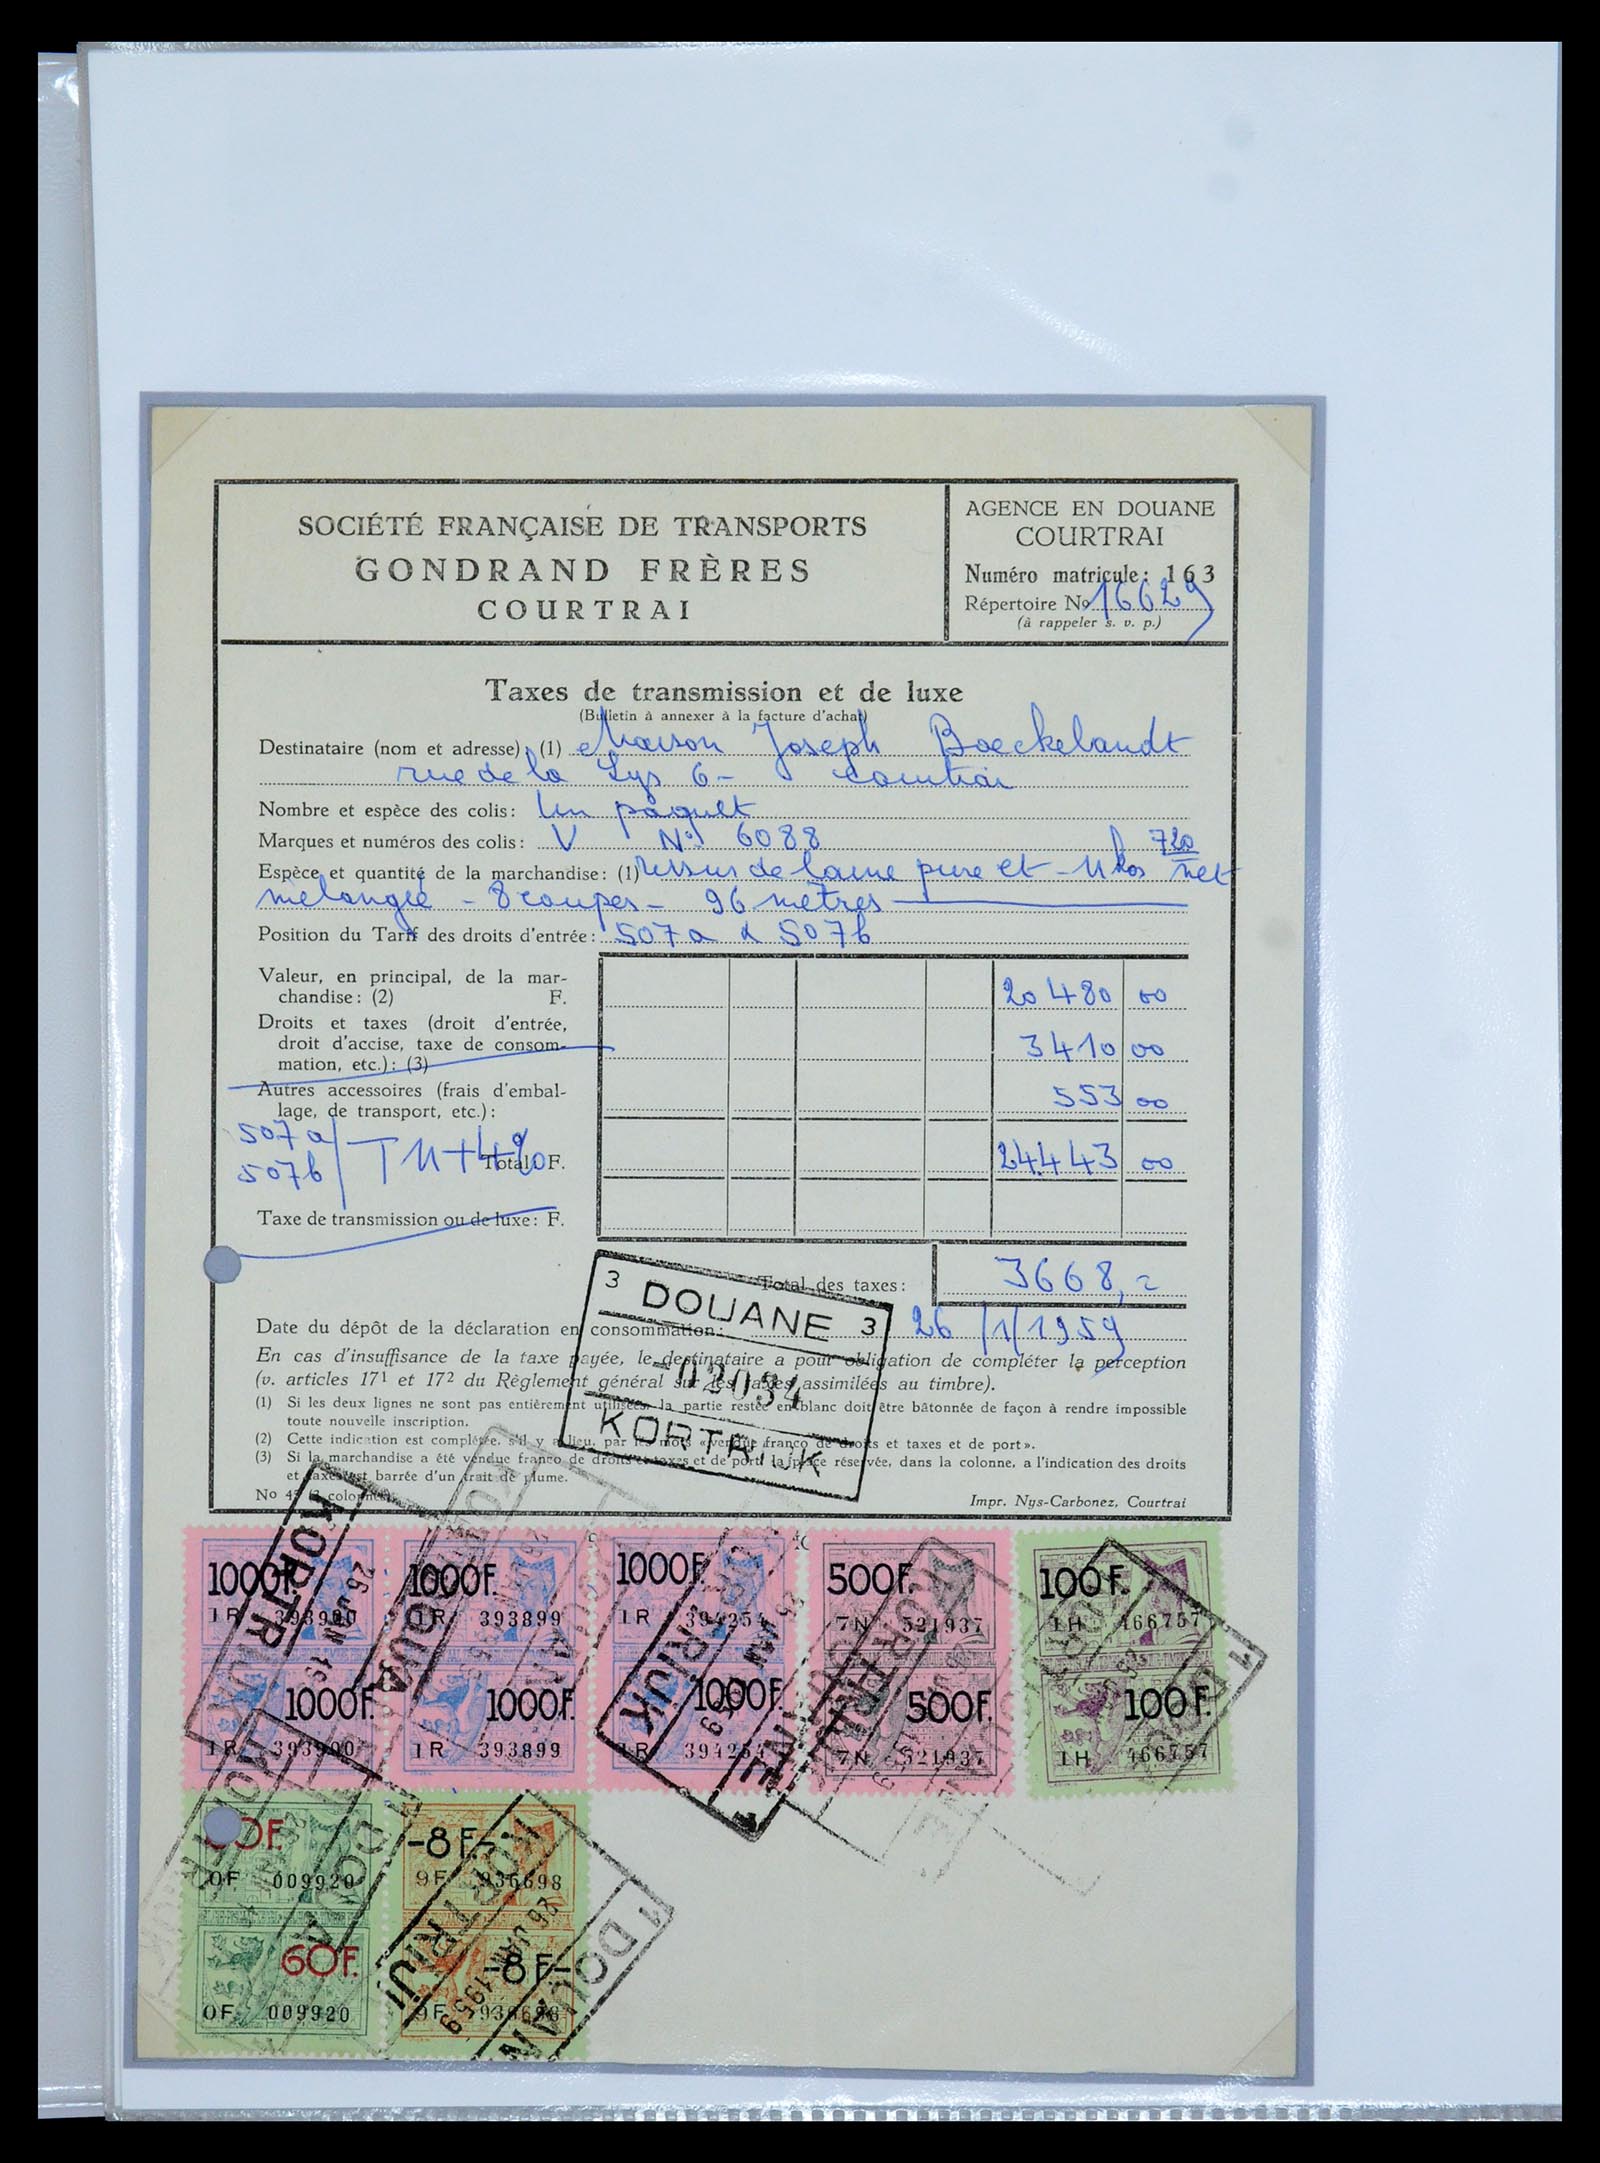 SOCIÉTÉ FRANÇAISE DE TRANSPORTS
GONDRAND FRÈRES
COURTRAI
AGENCE EN DOUANE
COURTRAI
Numéro matricule: 163
Répertoire No 16629
(à rappeler s. v. p.)
Taxes de transmission et de luxe
(Bulletin à annexer à la facture d'achat)
Destinataire (nom et adresse) (1) Maison Joseph Boeckelandt
rue de la Lys 6 - Courtrai
Nombre et espèce des colis: Un paquet
Marques et numéros des colis: V No 6088
Espèce et quantité de la marchandise: (1) tissus de laine pure et - 11 kos 720 net
mélangée - 8 coupes - 96 mètres
Position du Tarif des droits d'entrée: 507a & 507b
Valeur, en principal, de la mar-
chandise: (2) F. 20480 00
Droits et taxes (droit d'entrée,
droit d'accise, taxe de consom-
mation, etc.): (3) 3410 00
Autres accessoires (frais d'embal-
lage, de transport, etc.): 553 00
507a
507b
T 11+4%
Total F. 24.443 00
Taxe de transmission ou de luxe: F.
Total des taxes: 3668,=
3 DOUANE 3
-02034
KORTRIJK
Date du dépôt de la déclaration en consommation: 26/1/1959
En cas d'insuffisance de la taxe payée, le destinataire a pour obligation de compléter la perception
(v. articles 17¹ et 17² du Règlement général sur les taxes assimilées au timbre).
(1) Si les deux lignes ne sont pas entièrement utilisées, la partie restée en blanc doit être bâtonnée de façon à rendre impossible
toute nouvelle inscription.
(2) Cette indication est complétée, s'il y a lieu, par les mots «vendue franco de droits et taxes et de port».
(3) Si la marchandise a été vendue franco de droits et taxes et de port, la place réservée, dans la colonne, a l'indication des droits
et taxes est barrée d'un trait de plume.
Impr. Nys-Carbonez, Courtrai
1000F. 1000F. 1000F. 500F. 100F.
1R 393900 1R 393899 1R 394254 7N 521937 1H 466757
1000F. 1000F. 1000F. 500F. 100F.
1R 393900 1R 393899 1R 394254 7N 521937 1H 466757
KORTRIJK
26 JAN 1959
DOUANE
0F. -8F.-
0F 009920 9F 936698
60F. -8F-
0F 009920 9F 936698
KORTRIJK
26 JAN 1959
1 DOUANE